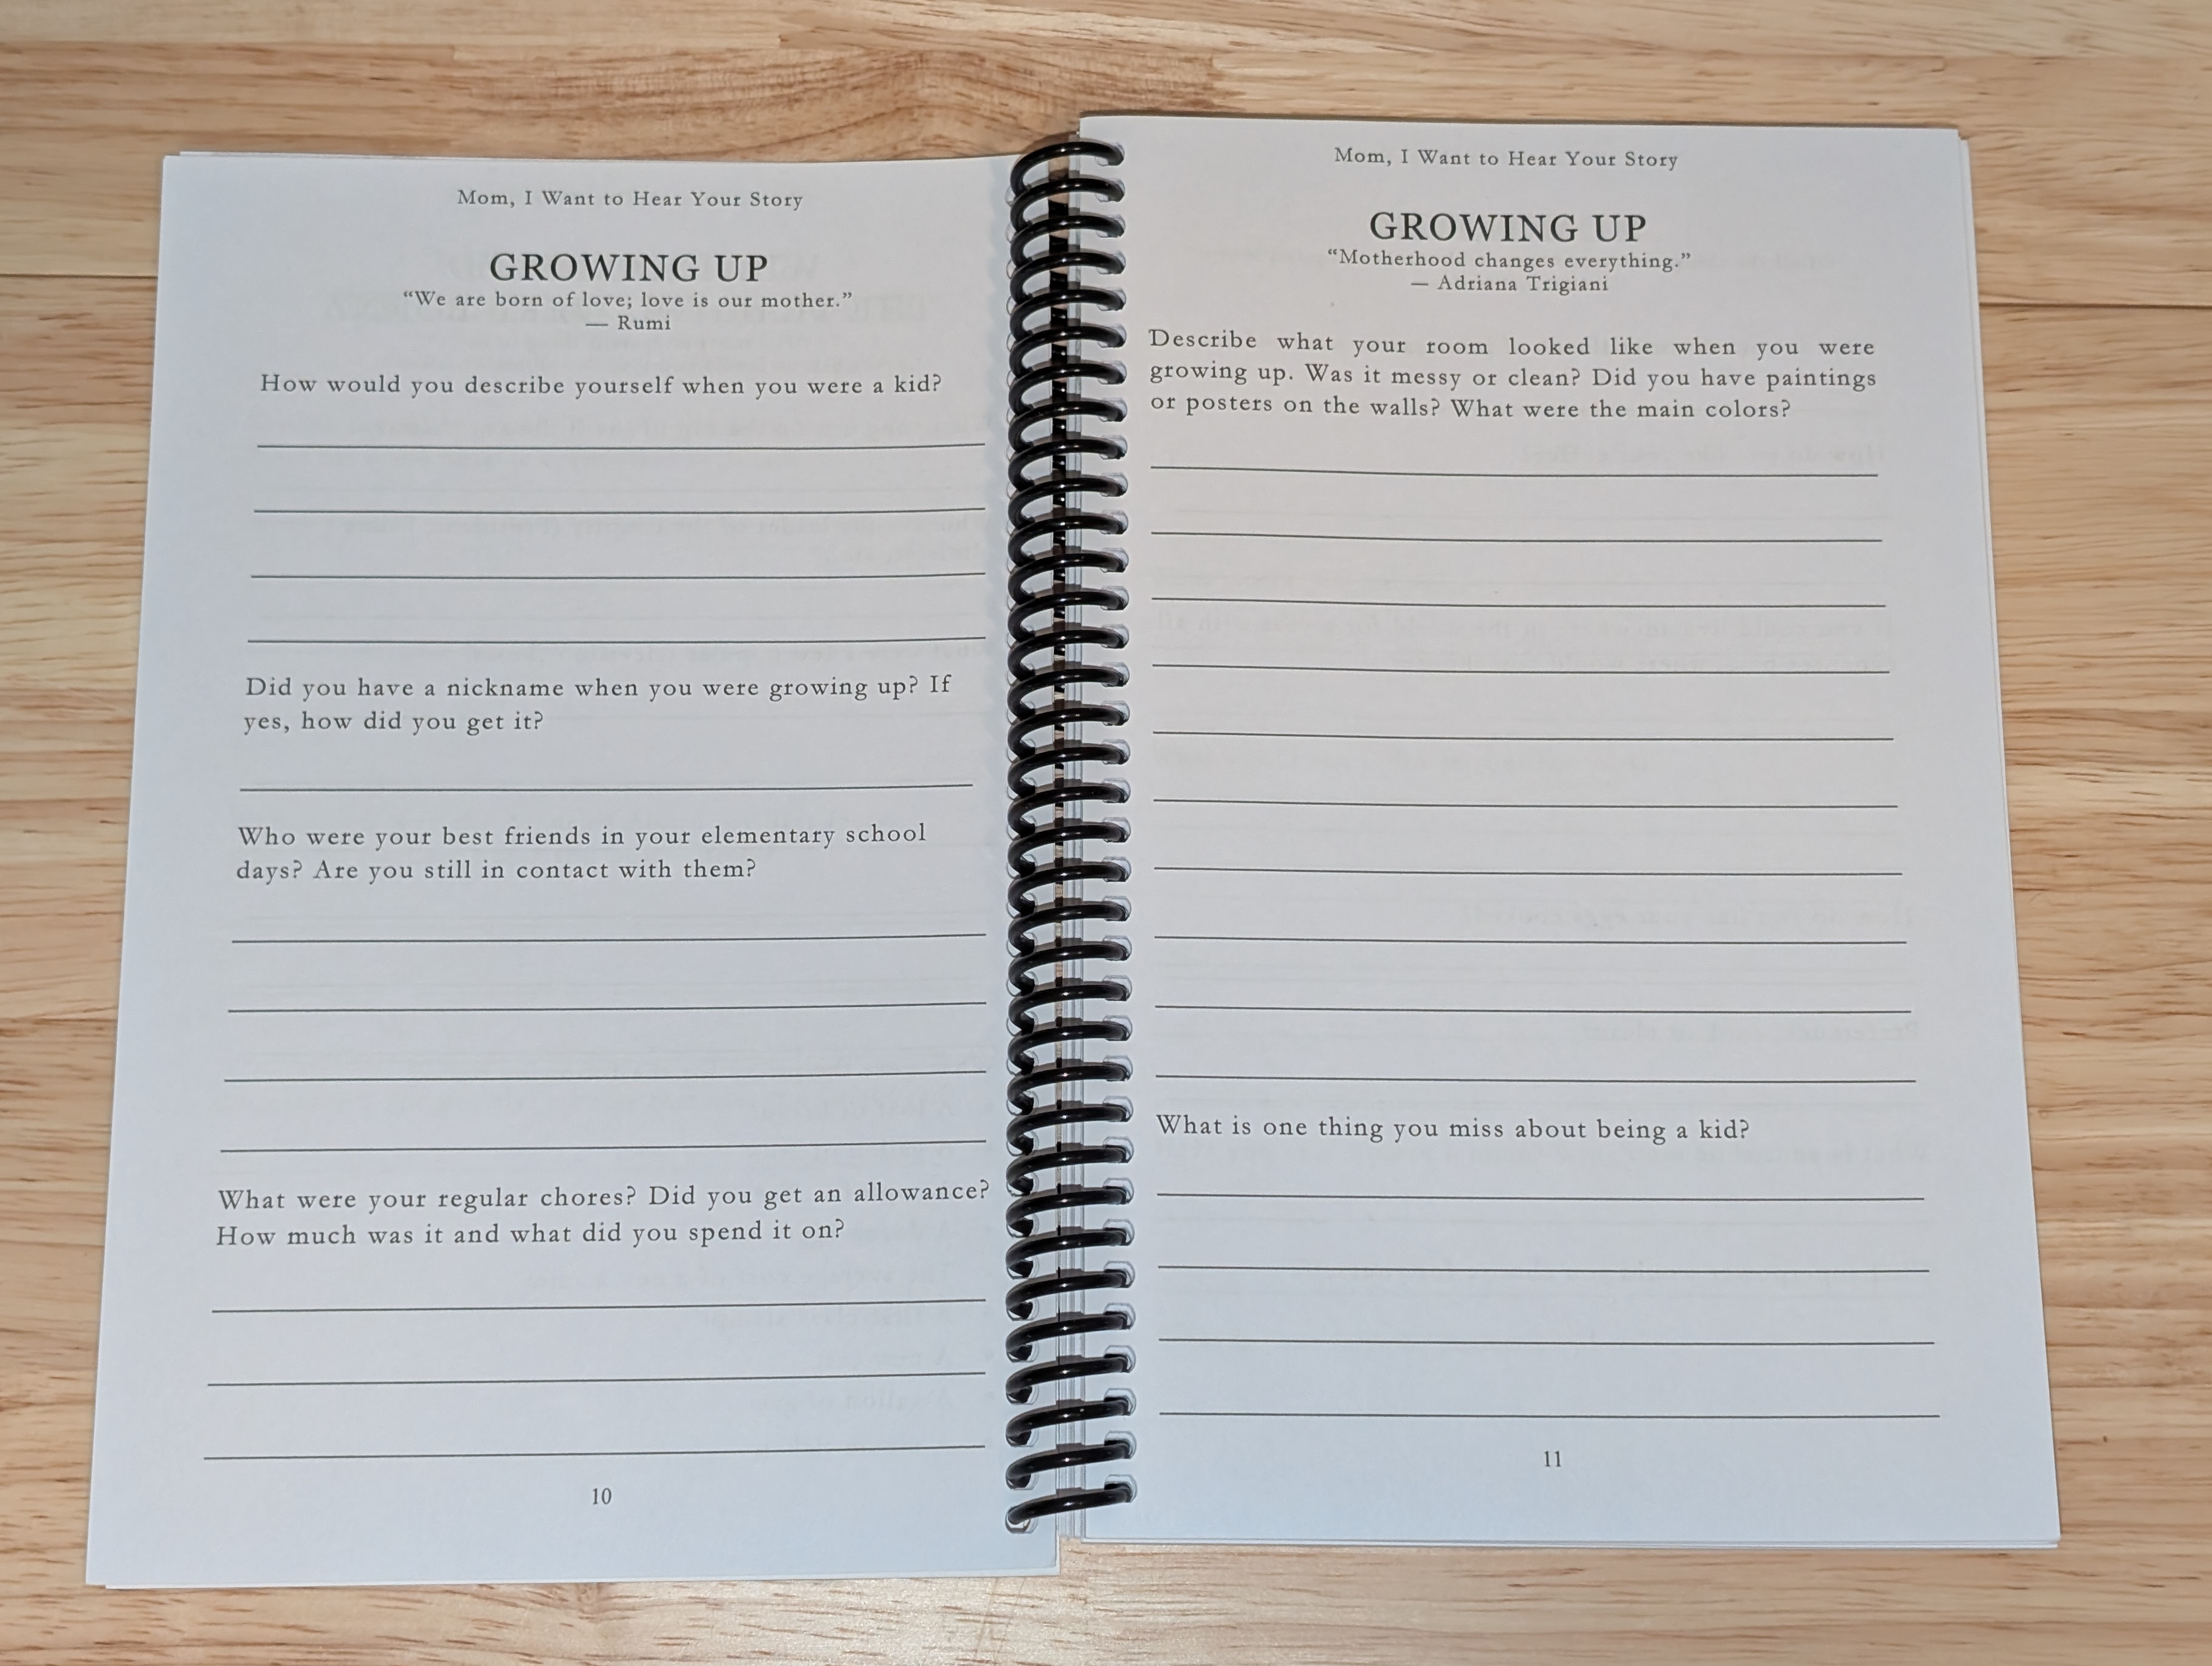 Mom, I Want to Hear Your Story
GROWING UP
“We are born of love; love is our mother.”
— Rumi
How would you describe yourself when you were a kid?
Did you have a nickname when you were growing up? If
yes, how did you get it?
Who were your best friends in your elementary school
days? Are you still in contact with them?
What were your regular chores? Did you get an allowance?
How much was it and what did you spend it on?
10
Mom, I Want to Hear Your Story
GROWING UP
“Motherhood changes everything.”
— Adriana Trigiani
Describe what your room looked like when you were
growing up. Was it messy or clean? Did you have paintings
or posters on the walls? What were the main colors?
What is one thing you miss about being a kid?
11